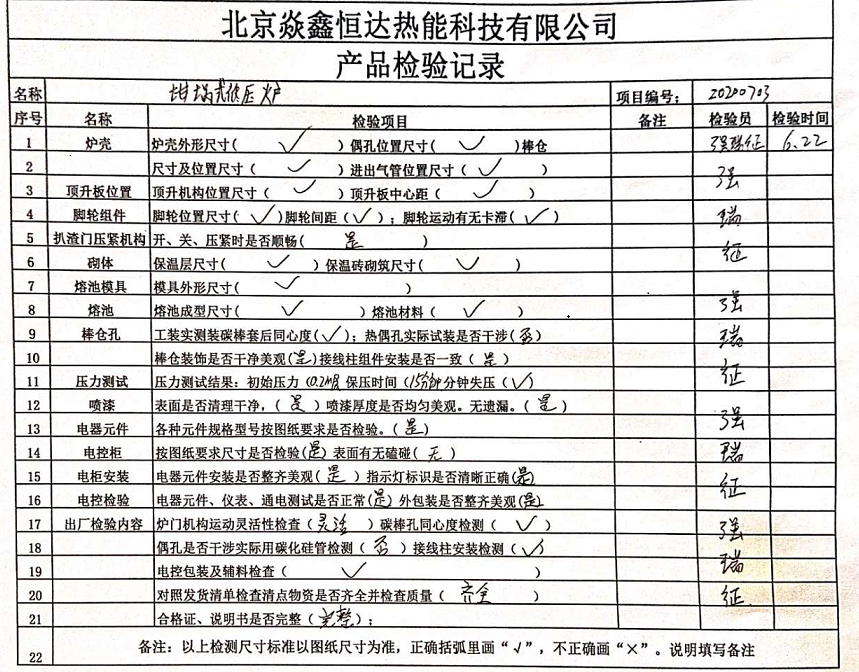 北京焱鑫恒达热能科技有限公司
产品检验记录
名称 坩埚式保压炉 项目编号： 20200703
序号 名称 检验项目 备注 检验员 检验时间
1 炉壳 炉壳外形尺寸( ✓ )偶孔位置尺寸( ✓ )棒仓 强瑞征 6.22
2 尺寸及位置尺寸( ✓ )进出气管位置尺寸( ✓ ) 强
3 顶升板位置 顶升机构位置尺寸( ✓ )顶升板中心距( ✓ )
4 脚轮组件 脚轮位置尺寸( ✓ )脚轮间距( ✓ )；脚轮运动有无卡滞( ✓ ) 瑞
5 扒渣门压紧机构 开、关、压紧时是否顺畅( 是 ) 征
6 砌体 保温层尺寸( ✓ )保温砖砌筑尺寸( ✓ )
7 熔池模具 模具外形尺寸( ✓ )
8 熔池 熔池成型尺寸( ✓ )熔池材料( ✓ ) 强
9 棒仓孔 工装实测装碳棒套后同心度( ✓ )；热偶孔实际试装是否干涉( 否 ) 瑞
10 棒仓装饰是否干净美观( 是 )接线柱组件安装是否一致( 是 )
11 压力测试 压力测试结果：初始压力( 0.2MPa 保压时间( 15分钟 分钟失压( ✓ ) 征
12 喷漆 表面是否清理干净，( 是 )喷漆厚度是否均匀美观。无遗漏。( 是 )
13 电器元件 各种元件规格型号按图纸要求是否检验。( 是 ) 强
14 电控柜 按图纸要求尺寸是否检验( 是 )表面有无磕碰( 无 ) 瑞
15 电柜安装 电器元件安装是否整齐美观( 是 )指示灯标识是否清晰正确( 是 )
16 电控检验 电器元件、仪表、通电测试是否正常( 是 )外包装是否整齐美观( 是 ) 征
17 出厂检验内容 炉门机构运动灵活性检查( 灵活 )碳棒孔同心度检测( ✓ ) 强
18 偶孔是否干涉实际用碳化硅管检测( 否 )接线柱安装检测( ✓ )
19 电控包装及辅料检查( ✓ ) 瑞
20 对照发货清单检查清点物资是否齐全并检查质量( 齐全 ) 征
21 合格证、说明书是否完整( 完整 )；
22 备注：以上检测尺寸标准以图纸尺寸为准，正确括弧里画“√”，不正确画“×”。说明填写备注